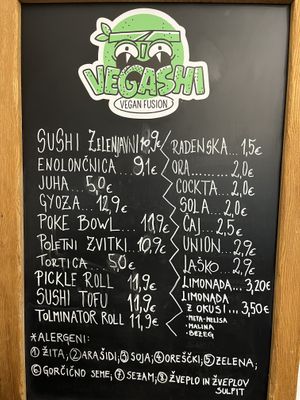 VEGASHI
VEGAN FUSION
SUSHI ZELENJAVNI 10,9€
ENOLONČNICA 9,1€
JUHA 5,0€
GYOZA 12,9€
POKE BOWL 11,9€
POLETNI ZVITKI 10,9€
TORTICA 5,0€
PICKLE ROLL 11,9€
SUSHI TOFU 11,9€
TOLMINATOR ROLL 11,9€
RADENSKA... 1,5€
ORA......... 2,0€
COCKTA... 2,0€
SOLA... 2,0€
ČAJ... 2,5€
UNION.. 2,9€
LAŠKO... 2,9€
LIMONADA.... 3,20€
LIMONADA
Z OKUSI... 3,50€
-META-MELISA
-MALINA
-BEZEG
*ALERGENI:
①ŽITA; ②ARAŠIDI; ③SOJA; ④OREŠČKI; ⑤ZELENA;
⑥GORČIČNO SEME; ⑦SEZAM; ⑧ŽVEPLO IN ŽVEPLOV
SULFIT